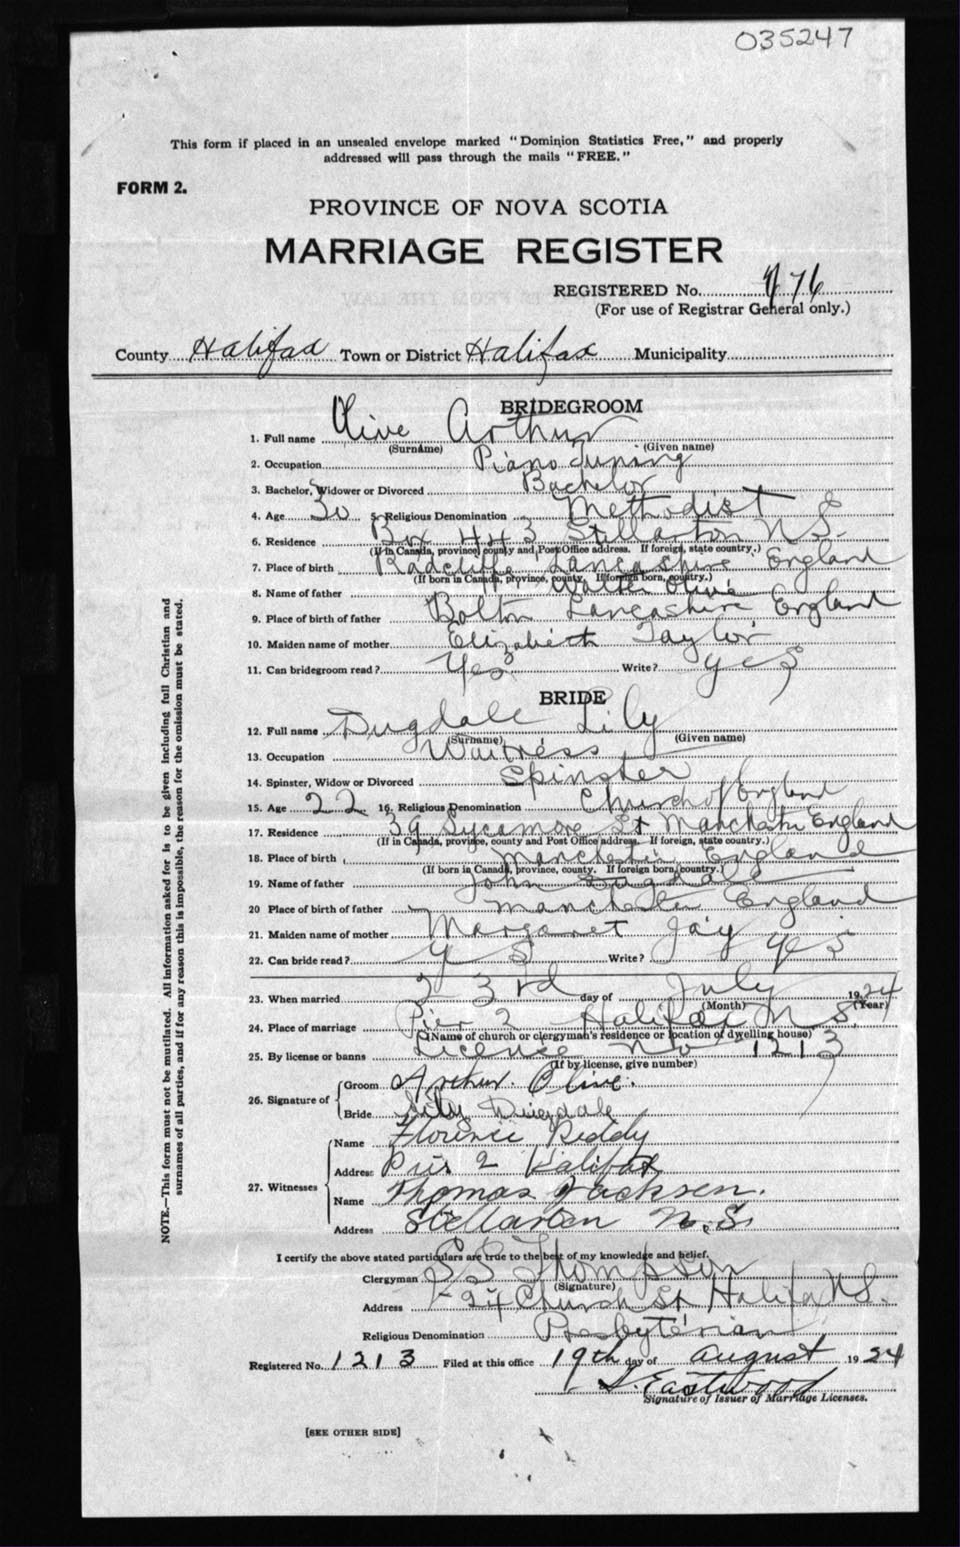 035247
This form if placed in an unsealed envelope marked "Dominion Statistics Free," and properly
addressed will pass through the mails "FREE."
FORM 2.
PROVINCE OF NOVA SCOTIA
MARRIAGE REGISTER
REGISTERED No. 76
(For use of Registrar General only.)
County Halifax Town or District Halifax Municipality
BRIDEGROOM
1. Full name Olive Arthur
(Surname) (Given name)
2. Occupation Piano Tuning
3. Bachelor, Widower or Divorced Bachelor
4. Age 30 5. Religious Denomination Methodist
6. Residence Box 443 Stellarton N.S.
(If in Canada, province, county and Post Office address. If foreign, state country.)
7. Place of birth Radcliffe Lancashire England
(If born in Canada, province, county. If foreign born, country.)
8. Name of father Walter Olive
9. Place of birth of father Bolton Lancashire England
10. Maiden name of mother Elizabeth Taylor
11. Can bridegroom read? Yes Write? yes
BRIDE
12. Full name Dugdale Lily
(Surname) (Given name)
13. Occupation Waitress
14. Spinster, Widow or Divorced Spinster
15. Age 22 16. Religious Denomination Church of England
17. Residence 39 Sycamore St Manchester England
(If in Canada, province, county and Post Office address. If foreign, state country.)
18. Place of birth Manchester England
(If born in Canada, province, county. If foreign born, country.)
19. Name of father John Dugdale
20 Place of birth of father Manchester England
21. Maiden name of mother Margaret Jay
22. Can bride read? Yes Write? yes
23. When married 23rd day of July 1924
(Month) (Year)
24. Place of marriage Pier 2 Halifax N.S.
(Name of church or clergyman's residence or location of dwelling house)
25. By license or banns License No 1213
(If by license, give number)
26. Signature of
Groom Arthur. Olive.
Bride Lily Dugdale
27. Witnesses
Name Florence Reddy
Address Pier 2 Halifax
Name Thomas Jackson.
Address Stellarton N.S.
I certify the above stated particulars are true to the best of my knowledge and belief.
Clergyman Thompson
(Signature)
Address 24 Church St Halifax N.S.
Religious Denomination Presbyterian
Registered No. 1213 Filed at this office 19th day of August 1924
Eastwood
Signature of Issuer of Marriage Licenses.
[SEE OTHER SIDE]
NOTE.—This form must not be mutilated. All information asked for is to be given including full Christian and
surnames of all parties, and if for any reason this is impossible, the reason for the omission must be stated.